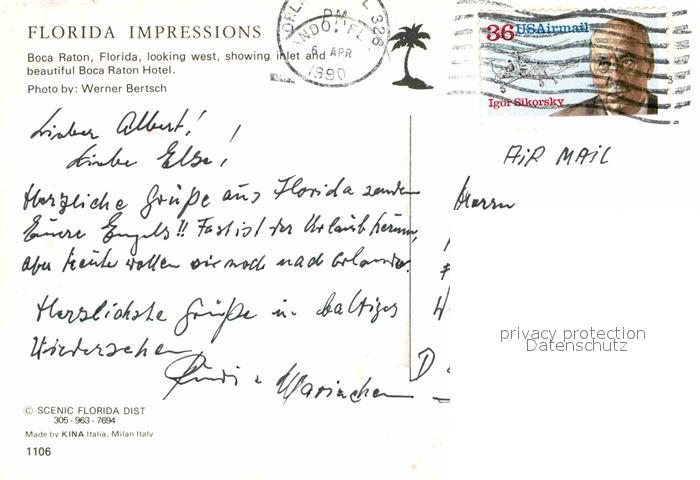 FLORIDA IMPRESSIONS
Boca Raton, Florida, looking west, showing inlet and
beautiful Boca Raton Hotel.
Photo by: Werner Bertsch
ORLANDO, FL 328
PM
6 APR
1990
36 USAirmail
Igor Sikorsky
AIR MAIL
Lieber Albert!
Liebe Else!
Herzliche Grüße aus Florida senden
Euere Engels!! Fast ist der Urlaub herum,
aber heute wollen wir noch nach Orlando.
Herzlichste Grüße u. baldiges
Wiedersehen
Rudi u Mariechen
Herrn
D
privacy protection
Datenschutz
© SCENIC FLORIDA DIST
305 - 963 - 7694
Made by KINA Italia, Milan Italy
1106